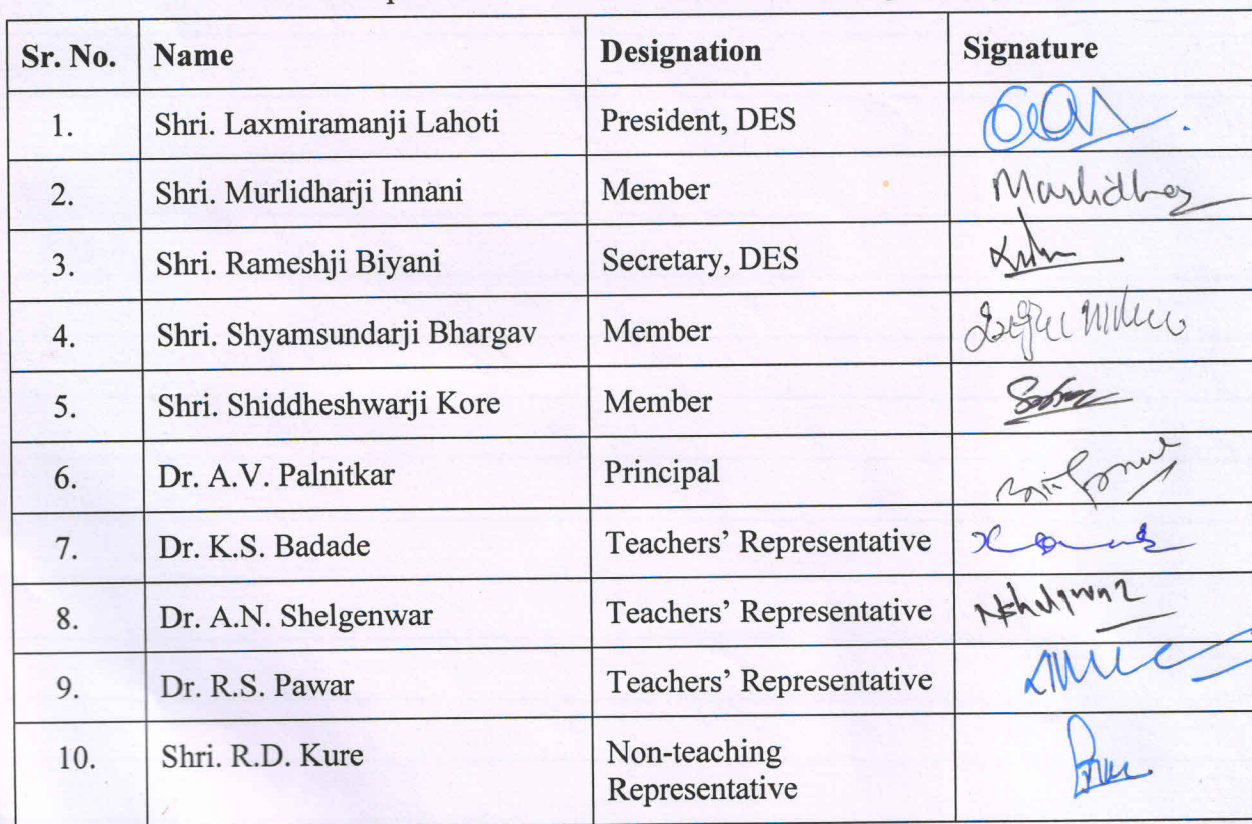 Sr. No. Name Designation Signature
1. Shri. Laxmiramanji Lahoti President, DES
2. Shri. Murlidharji Innani Member
3. Shri. Rameshji Biyani Secretary, DES
4. Shri. Shyamsundarji Bhargav Member
5. Shri. Shiddheshwarji Kore Member
6. Dr. A.V. Palnitkar Principal
7. Dr. K.S. Badade Teachers’ Representative
8. Dr. A.N. Shelgenwar Teachers’ Representative
9. Dr. R.S. Pawar Teachers’ Representative
10. Shri. R.D. Kure Non-teaching
Representative